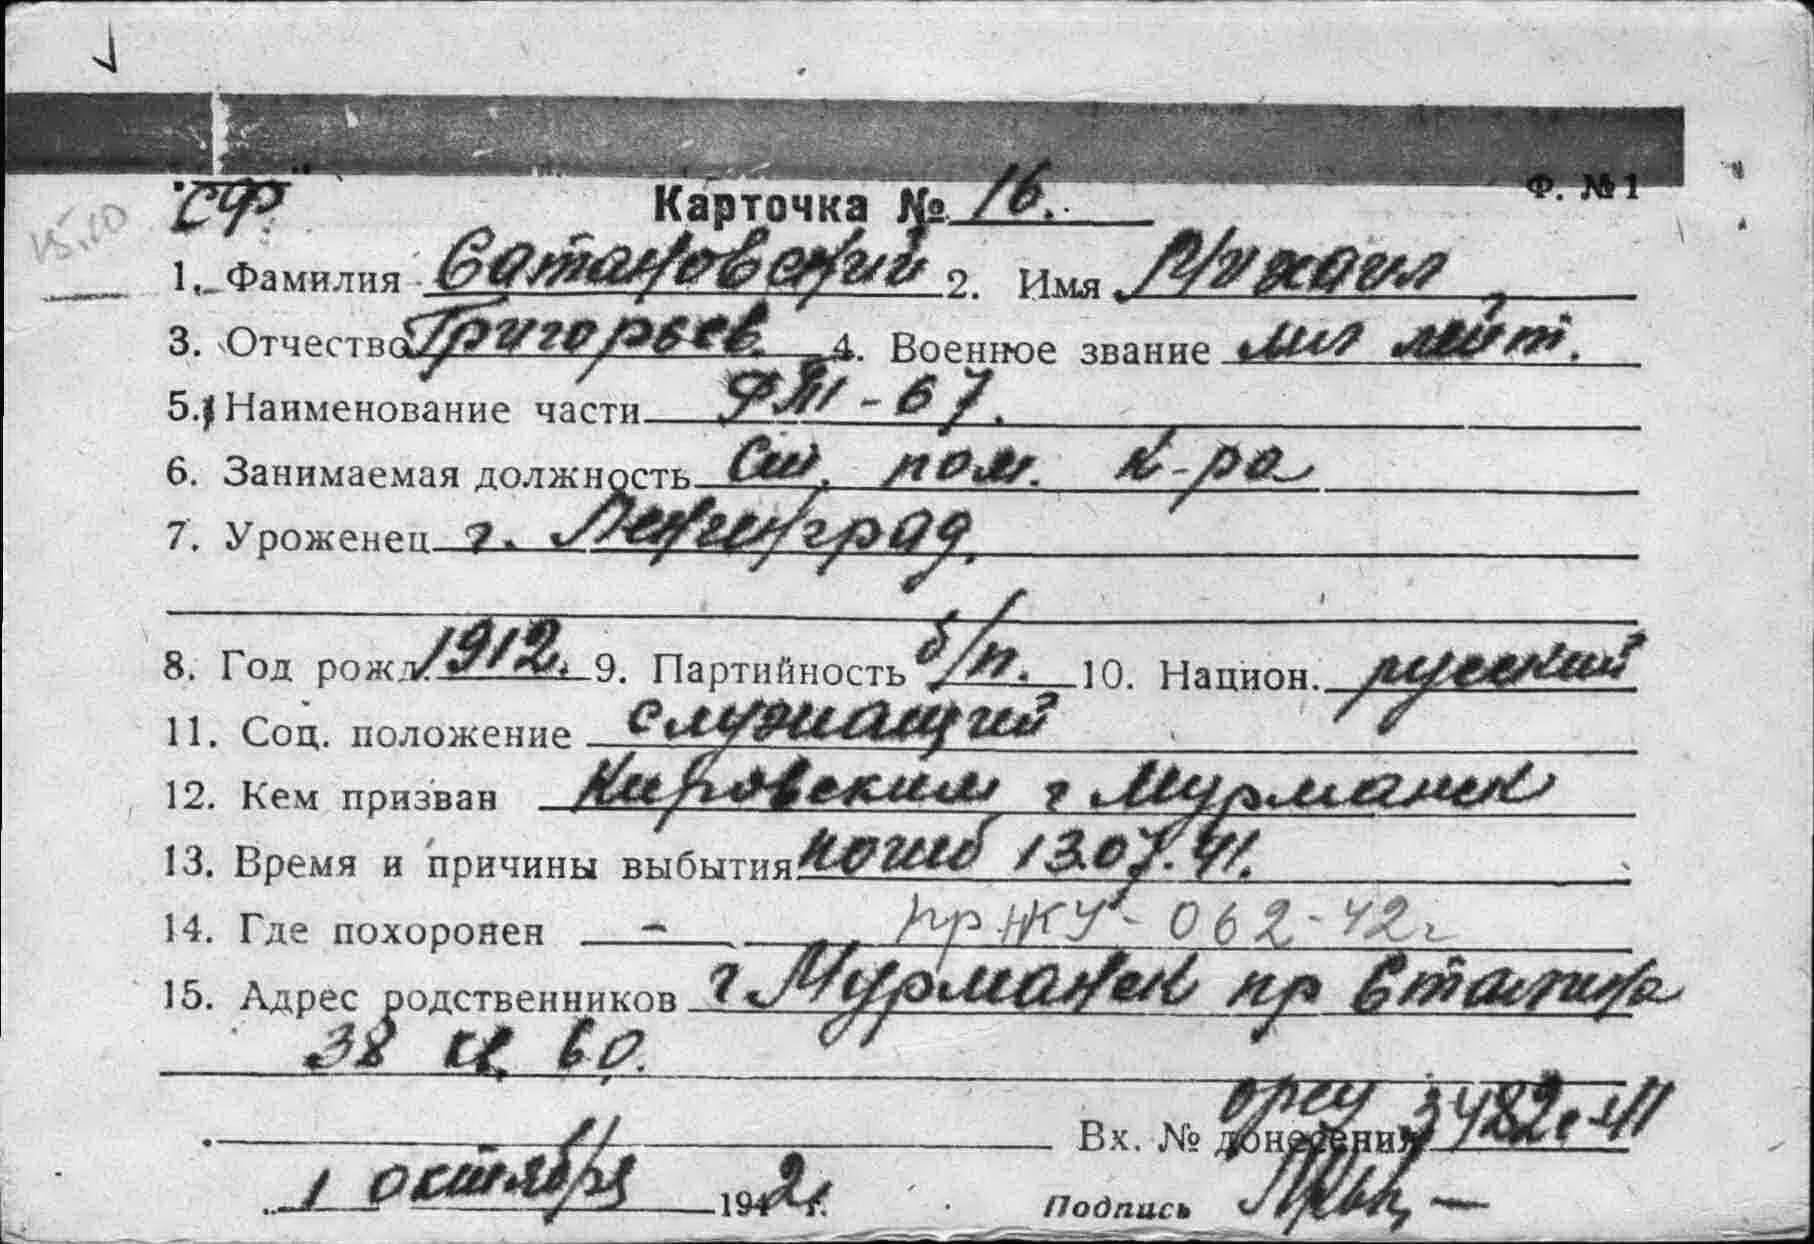 "СФ"
Ф. № 1
Карточка № 16.
15.10
1. Фамилия Сатановский 2. Имя Михаил
3. Отчество Григорьев. 4. Военное звание мл лейт.
5. Наименование части РТ-67.
6. Занимаемая должность Ст. пом. к-ра
7. Уроженец г. Ленинград.
8. Год рожд. 1912. 9. Партийность б/п. 10. Национ. русский
11. Соц. положение служащий
12. Кем призван Кировским г Мурманск
13. Время и причины выбытия погиб 13.07.41.
14. Где похоронен - пр НКУ-062-42г
15. Адрес родственников г Мурманск пр Сталина
38 кв. 60.
Вх. № донесения 3482с-41
1 октября 1942г.
Подпись